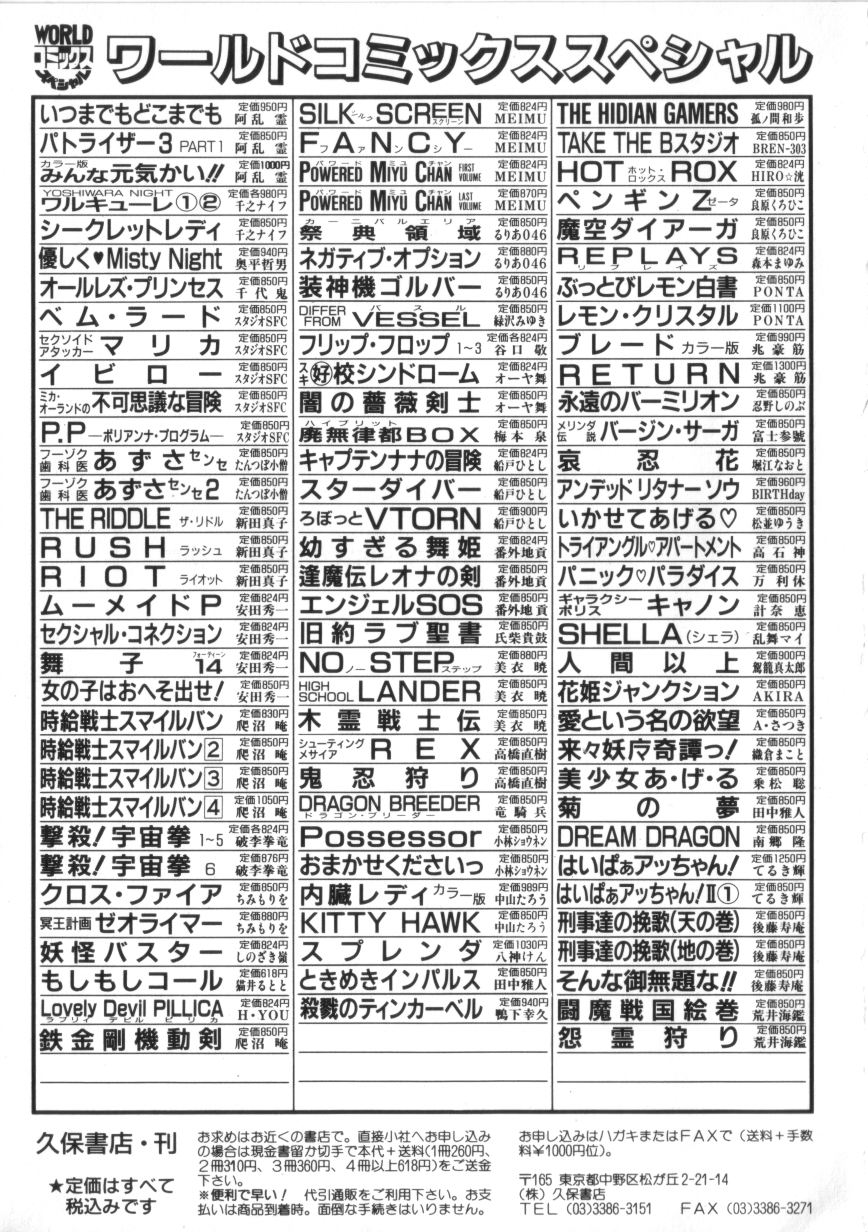 WORLD
コミックス
スペシャル
ワールドコミックススペシャル
いつまでもどこまでも 定価950円 阿乱霊
パトライザー3 PART1 定価850円 阿乱霊
カラー版 みんな元気かい!! 定価1000円 阿乱霊
YOSHIWARA NIGHT ワルキューレ①② 定価各980円 千之ナイフ
シークレットレディ 定価850円 千之ナイフ
優しく♥Misty Night 定価940円 奥平哲男
オールレズ・プリンセス 定価850円 千代鬼
ベム・ラード 定価850円 スタジオSFC
セクソイドアタッカー マリカ 定価850円 スタジオSFC
イビロー 定価850円 スタジオSFC
ミカ・オーランドの不可思議な冒険 定価850円 スタジオSFC
P.P ―ポリアンナ・プログラム― 定価850円 スタジオSFC
フーゾク歯科医 あずさセンセ 定価850円 たんつぼ小僧
フーゾク歯科医 あずさセンセ2 定価850円 たんつぼ小僧
THE RIDDLE ザ・リドル 定価850円 新田真子
RUSH ラッシュ 定価850円 新田真子
RIOT ライオット 定価850円 新田真子
ムーメイドP 定価824円 安田秀一
セクシャル・コネクション 定価824円 安田秀一
舞子14 フォーティーン 定価824円 安田秀一
女の子はおへそ出せ! 定価850円 安田秀一
時給戦士スマイルバン 定価830円 爬沼暁
時給戦士スマイルバン2 定価850円 爬沼暁
時給戦士スマイルバン3 定価850円 爬沼暁
時給戦士スマイルバン4 定価1050円 爬沼暁
撃殺!宇宙拳 1~5 定価各824円 破李拳竜
撃殺!宇宙拳 6 定価876円 破李拳竜
クロス・ファイア 定価850円 ちみもりを
冥王計画ゼオライマー 定価880円 ちみもりを
妖怪バスター 定価824円 しのざき嶺
もしもしコール 定価618円 猫井るとと
Lovely Devil PILLICA ラブリィ デビル ピリカ 定価824円 H・YOU
鉄金剛機動剣 定価850円 爬沼暁
SILK シルク SCREEN スクリーン 定価824円 MEIMU
FANCY ファンシー 定価824円 MEIMU
POWERED MIYU CHAN パワード ミユ チャン FIRST VOLUME 定価824円 MEIMU
POWERED MIYU CHAN パワード ミユ チャン LAST VOLUME 定価870円 MEIMU
祭典領域 カーニバルエリア 定価850円 るりあ046
ネガティブ・オプション 定価880円 るりあ046
装神機ゴルバー 定価850円 るりあ046
DIFFER FROM VESSEL バスル 定価850円 緑沢みゆき
フリップ・フロップ 1~3 定価各824円 谷口敬
スキ 好校シンドローム 定価824円 オーヤ舞
闇の薔薇剣士 定価850円 オーヤ舞
廃無律都BOX ハイブリット 定価850円 梅本泉
キャプテンナナの冒険 定価824円 船戸ひとし
スターダイバー 定価850円 船戸ひとし
ろぼっとVTORN 定価900円 船戸ひとし
幼すぎる舞姫 定価824円 番外地貢
逢魔伝レオナの剣 定価850円 番外地貢
エンジェルSOS 定価850円 番外地貢
旧約ラブ聖書 定価850円 氏柴貴鼓
NO ノー STEP ステップ 定価880円 美衣暁
HIGH SCHOOL LANDER 定価850円 美衣暁
木霊戦士伝 定価850円 美衣暁
シューティングメサイア REX 定価850円 高橋直樹
鬼忍狩り 定価850円 高橋直樹
DRAGON BREEDER ドラゴン・ブリーダー 定価850円 竜騎兵
Possessor 定価850円 小林ショウネン
おまかせくださいっ 定価850円 小林ショウネン
内臓レディ カラー版 定価989円 中山たろう
KITTY HAWK 定価850円 中山たろう
スプレンダ 定価1030円 八神けん
ときめきインパルス 定価850円 田中雅人
殺戮のティンカーベル 定価940円 鴨下幸久
THE HIDIAN GAMERS 定価980円 孤ノ間和歩
TAKE THE Bスタジオ 定価850円 BREN-303
HOT ホット・ロックス ROX 定価824円 HIRO☆洸
ペンギンZ ゼータ 定価850円 良原くろひこ
魔空ダイアーガ 定価850円 良原くろひこ
REPLAYS リプレイズ 定価824円 森本まゆみ
ぶっとびレモン白書 定価850円 PONTA
レモン・クリスタル 定価1100円 PONTA
ブレード カラー版 定価990円 兆豪筋
RETURN 定価1300円 兆豪筋
永遠のバーミリオン 定価850円 忍野しのぶ
メリンダ伝説 バージン・サーガ 定価850円 富士参號
哀忍花 定価850円 堀江なおと
アンデッドリタナーソウ 定価960円 BIRTHday
いかせてあげる♡ 定価850円 松並ゆうき
トライアングル♡アパートメント 定価850円 高石神
パニック♡パラダイス 定価850円 万利休
ギャラクシーポリス キャノン 定価850円 計奈恵
SHELLA(シェラ) 定価850円 乱舞マイ
人間以上 定価900円 駕籠真太郎
花姫ジャンクション 定価850円 AKIRA
愛という名の欲望 定価850円 A・さつき
来々妖庁奇譚っ! 定価850円 鐵倉まこと
美少女あ・げ・る 定価850円 乗松聡
菊の夢 定価850円 田中雅人
DREAM DRAGON 定価850円 南郷隆
はいぱぁアッちゃん! 定価1250円 てるき輝
はいぱぁアッちゃん!Ⅱ① 定価850円 てるき輝
刑事達の挽歌(天の巻) 定価850円 後藤寿庵
刑事達の挽歌(地の巻) 定価850円 後藤寿庵
そんな御無題な!! 定価850円 後藤寿庵
闘魔戦国絵巻 定価850円 荒井海鑑
怨霊狩り 定価850円 荒井海鑑
久保書店・刊
★定価はすべて
税込みです
お求めはお近くの書店で。直接小社へお申し込み
の場合は現金書留か切手で本代+送料(1冊260円、
2冊310円、3冊360円、4冊以上618円)をご送金
下さい。
※便利で早い! 代引通販をご利用下さい。お支
払いは商品到着時。面倒な手続きはいりません。
お申し込みはハガキまたはFAXで(送料+手数
料¥1000円位)。
〒165 東京都中野区松が丘2-21-14
(株)久保書店
TEL (03)3386-3151 FAX (03)3386-3271